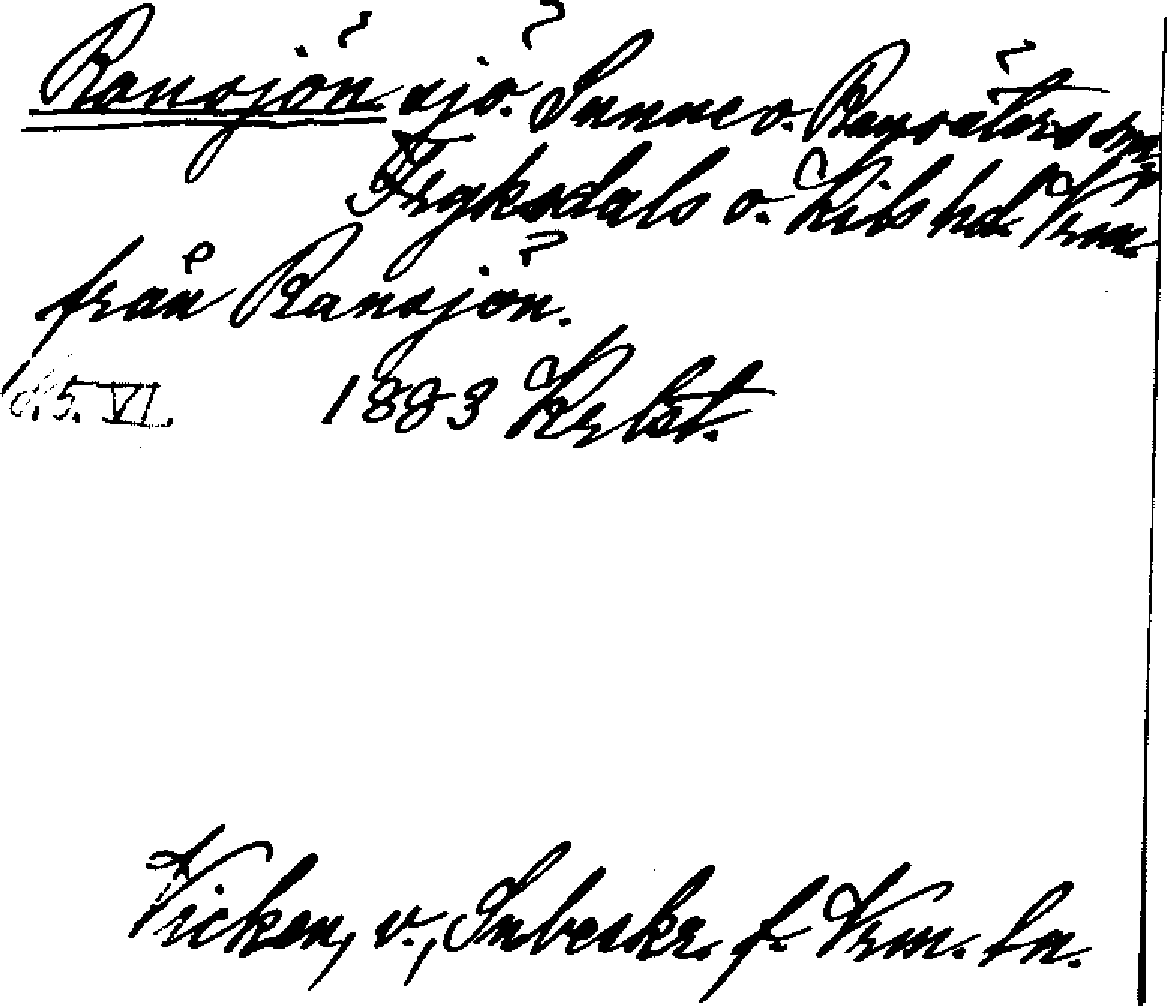 Ransjön sjö. Sunne o. Ransäters snr
Fryksdals o. Kils hd. Vrm.
från Ransjön.
d. 5. VI. 1883 Krlst.
Vicken, v., Snbeskr. f. Vrm. ln.